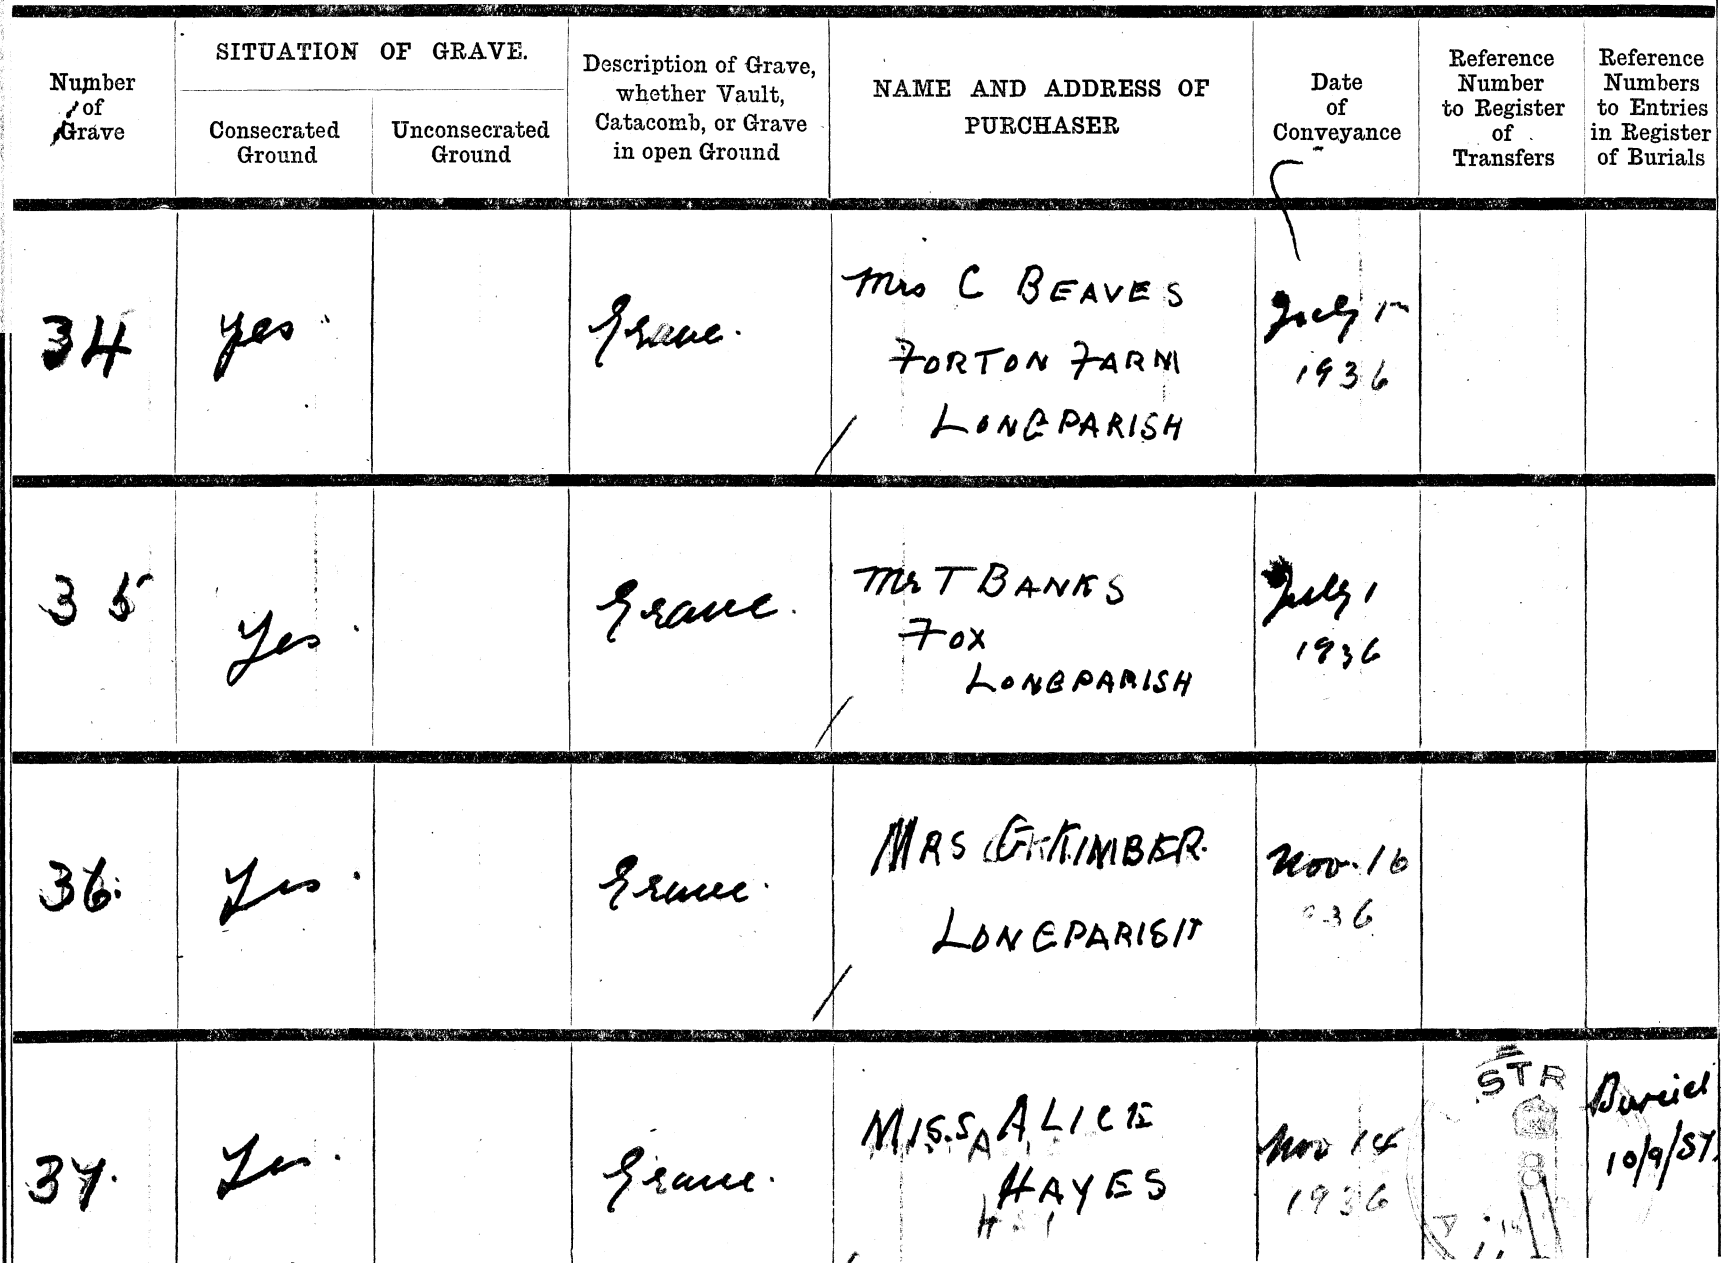 Number
of
Grave
SITUATION OF GRAVE.
Consecrated
Ground
Unconsecrated
Ground
Description of Grave,
whether Vault,
Catacomb, or Grave
in open Ground
NAME AND ADDRESS OF
PURCHASER
Date
of
Conveyance
Reference
Number
to Register
of
Transfers
Reference
Numbers
to Entries
in Register
of Burials
34
Yes
Grave.
Mrs C BEAVES
FORTON FARM
LONGPARISH
July 1
1936
35
Yes
Grave.
Mr T BANKS
FOX
LONGPARISH
July 1
1936
36.
Yes.
Grave.
MRS KIMBER.
LONGPARISH
Nov. 16
1936
37.
Yes.
Grave.
MISS ALICE
HAYES
Nov 14
1936
STR
Buried
10/9/57.